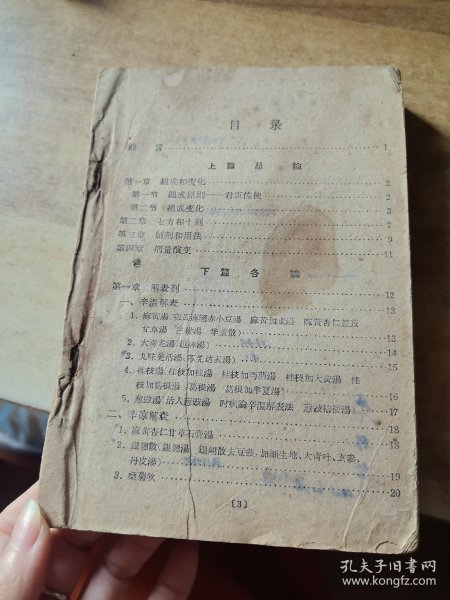 目录
前言 1
上篇 总論
第一章 組成和变化 2
第一节 組成原則——君臣佐使 2
第二节 組成变化 3
第二章 七方和十剂 7
第三章 制剂和用法 9
第四章 剂量演变 11
下篇 各論
第一章 解表剂 12
一、辛溫解表 13
1. 麻黄湯(麻黄連翹赤小豆湯 麻黄加朮湯 麻黄杏仁薏苡
甘草湯 三拗湯 华盖散) 13
2. 大青龙湯(越婢湯) 14
3. 九味羌活湯 15
4. 桂枝湯(桂枝加桂湯 桂枝加芍葯湯 桂枝加大黄湯 桂
枝加葛根湯 葛根湯 葛根加半夏湯) 16
5. 葱豉湯(活人葱豉湯 附 葱豉桔梗湯) 17
二、辛凉解表 18
1. 麻黄杏仁甘草石膏湯 18
2. 銀翹散(銀翹湯 銀翹散去豆豉,加細生地、大青叶、玄參、
丹皮湯) 19
3. 桑菊飲 20
〔3〕
孔夫子旧书网
www.kongfz.com